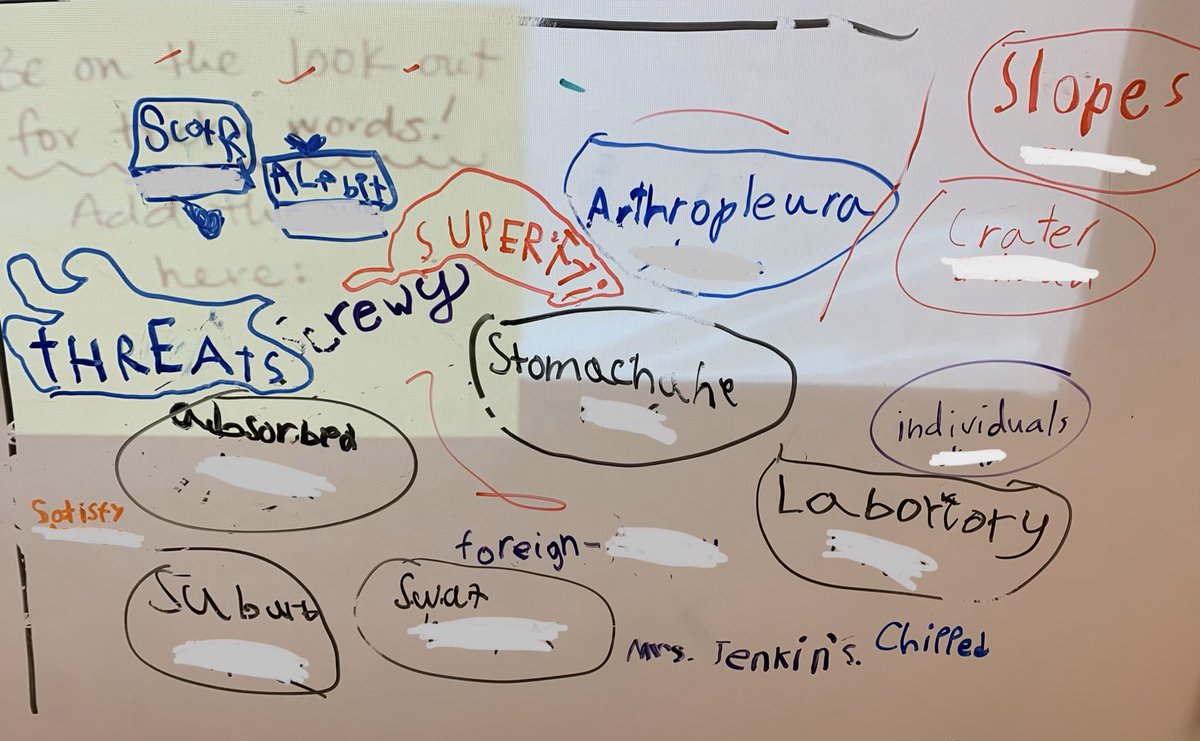 Be on the look out
for words!
Add
here:
Slopes
ALabit
Arthropleura
Crater
SUPER
Screwy
tHREAtS
Stomachahe
absorbed
individuals
Satisfy
Labortory
foreign-
Suburb
Mrs. Jenkin's. Chipped